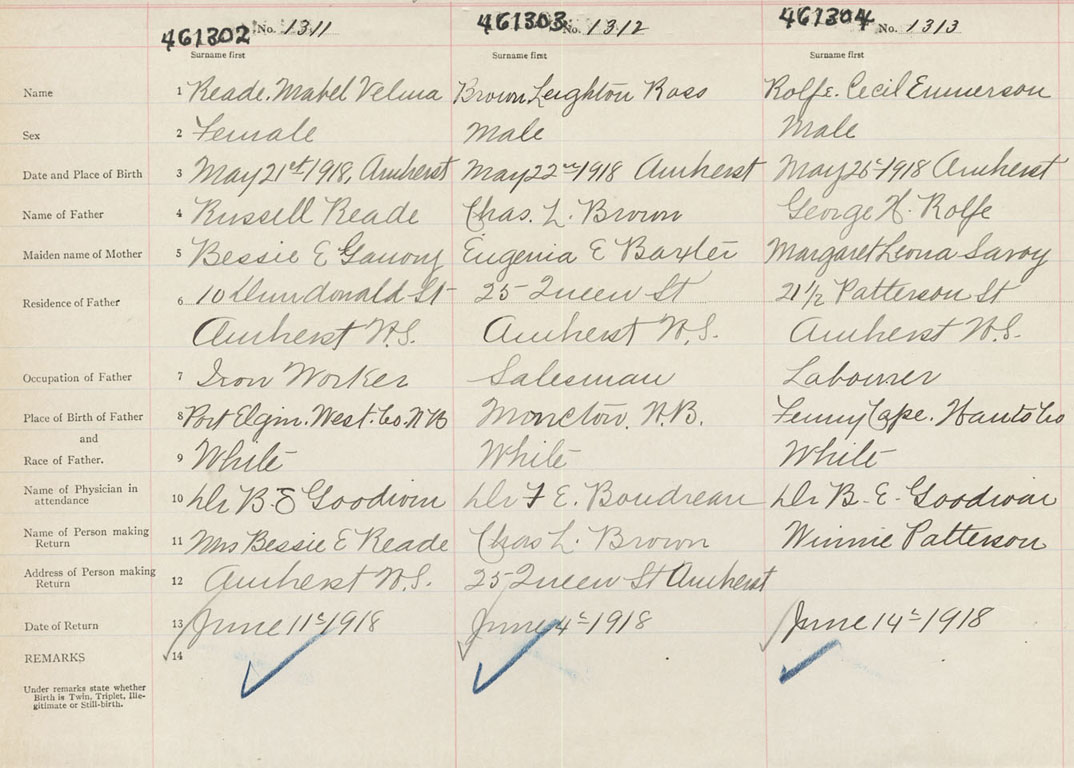 461302 No. 1311 461303 No. 1312 461304 No. 1313
Surname first Surname first Surname first
Name 1 Reade. Mabel Velma Brown Leighton Ross Rolfe. Cecil Emmerson
Sex 2 Female Male Male
Date and Place of Birth 3 May 21st 1918, Amherst May 22nd 1918 Amherst May 26th 1918 Amherst
Name of Father 4 Russell Reade Chas. L. Brown George H. Rolfe
Maiden name of Mother 5 Bessie E Ganong Eugenia E Baxter Margaret Leona Savoy
Residence of Father 6 10 Dundonald St 25 Queen St 21½ Patterson St
Amherst N.S. Amherst N.S. Amherst N.S.
Occupation of Father 7 Iron Worker Salesman Labourer
Place of Birth of Father 8 Port Elgin. West. Co. N B Moncton. N.B. Tenny Cape. Hants Co
and
Race of Father. 9 White White White
Name of Physician in
attendance 10 Dr B E Goodwin Dr F E. Boudreau Dr B. E. Goodwin
Name of Person making
Return 11 Mrs Bessie E Reade Chas L. Brown Winnie Patterson
Address of Person making
Return 12 Amherst N.S. 25 Queen St Amherst
Date of Return 13 June 11th 1918 June 4th 1918 June 14th 1918
REMARKS 14
Under remarks state whether
Birth is Twin, Triplet, Ille-
gitimate or Still-birth.